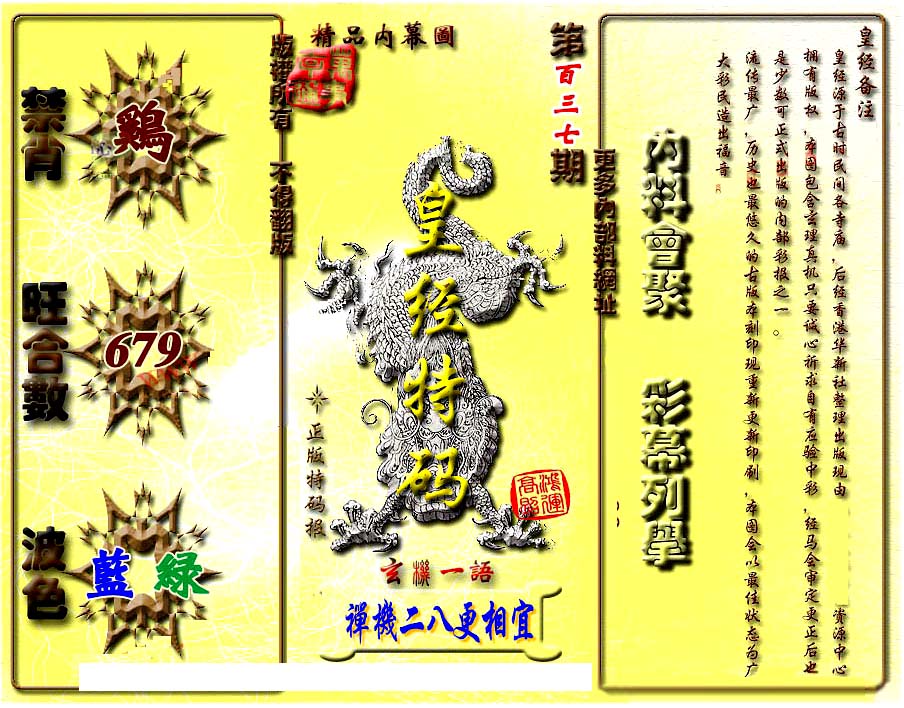 皇经备注
皇经源于古时民间各寺庙，后经香港华新社整理出版现由
资源中心
拥有版权，本图包含玄理真机只要诚心祈求自有应验中彩，经马会审定更正后也
是少数可正式出版的内部彩报之一。
流传最广，历史也最悠久的古版本刻印现重新更新印刷，本图会以最佳状态为广
大彩民造出福音
內料會聚
彩幕列舉
更多內部料網址
第百三七期
精品内幕圖
皇经特码
正版特码报
鴻運高照
玄機一語
禪機二八更相宜
版權所有 不得翻版
禁肖
鷄
旺合數
679
波色
藍 綠